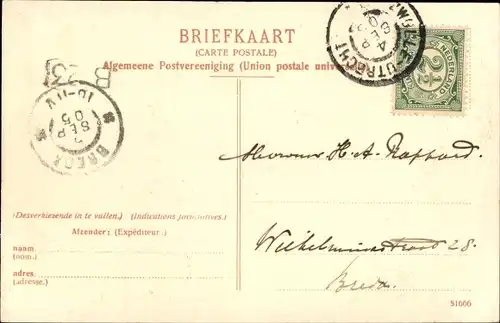 BRIEFKAART
(CARTE POSTALE)
Algemeene Postvereeniging (Union postale univ
ZWOLLE-UTRECHT
4 SEP
NEDERLAND
2½
B
23
10-11V
SEP
05
BREDA
Mevrouw H. A. Rappard.
(Desverkiezende in te vullen.) (Indications facultatives.)
Afzender: (Expéditeur.)
naam
(nom.)
adres
(adresse.)
Wilhelminastraat 28.
Breda.
51666